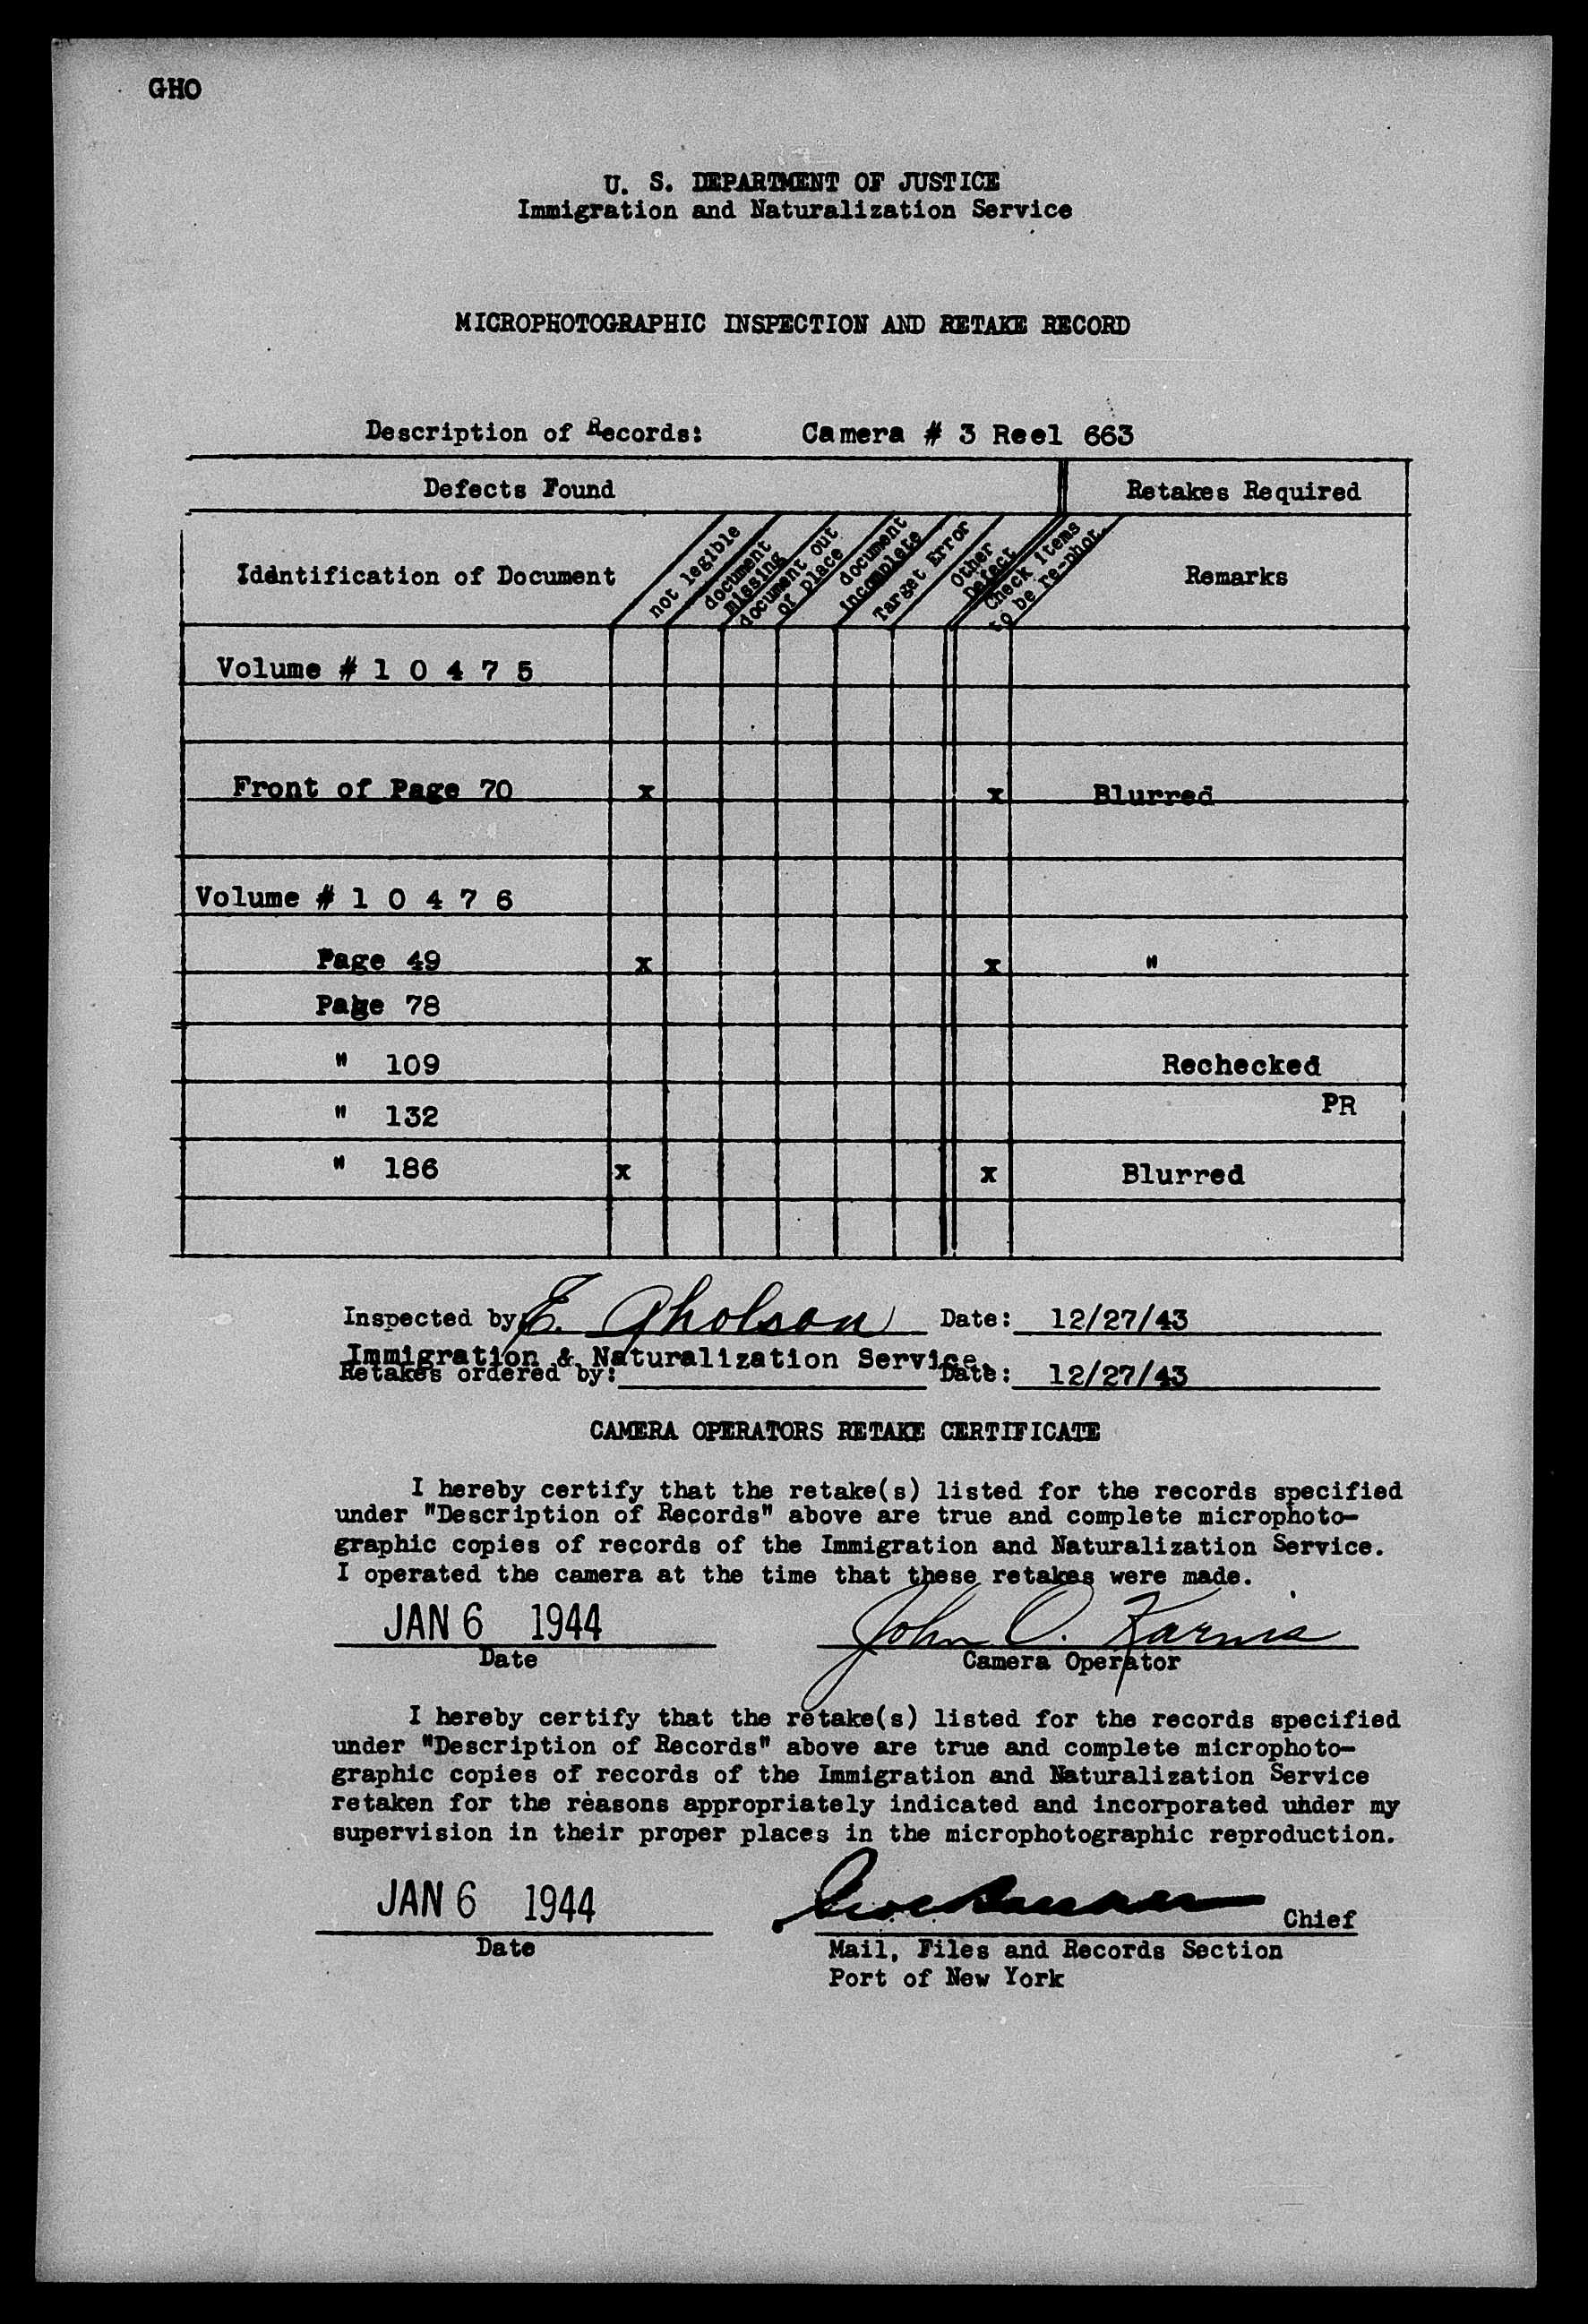 GHO
U. S. DEPARTMENT OF JUSTICE
Immigration and Naturalization Service
MICROPHOTOGRAPHIC INSPECTION AND RETAKE RECORD
Description of Records: Camera # 3 Reel 663
Defects Found Retakes Required
Identification of Document
not legible
document
missing
document out
of place
document
incomplete
Target Error
Other
Defect
Check items
to be re-phot.
Remarks
Volume # 1 0 4 7 5
Front of Page 70 x x Blurred
Volume # 1 0 4 7 6
Page 49 x x "
Page 78
" 109 Rechecked
" 132 PR
" 186 x x Blurred
Inspected by: E. Gholson Date: 12/27/43
Immigration & Naturalization Service.
Retakes ordered by: Date: 12/27/43
CAMERA OPERATORS RETAKE CERTIFICATE
I hereby certify that the retake(s) listed for the records specified
under "Description of Records" above are true and complete microphoto-
graphic copies of records of the Immigration and Naturalization Service.
I operated the camera at the time that these retakes were made.
JAN 6 1944 John O. Karnis
Date Camera Operator
I hereby certify that the retake(s) listed for the records specified
under "Description of Records" above are true and complete microphoto-
graphic copies of records of the Immigration and Naturalization Service
retaken for the reasons appropriately indicated and incorporated under my
supervision in their proper places in the microphotographic reproduction.
JAN 6 1944 Chief
Date Mail, Files and Records Section
Port of New York